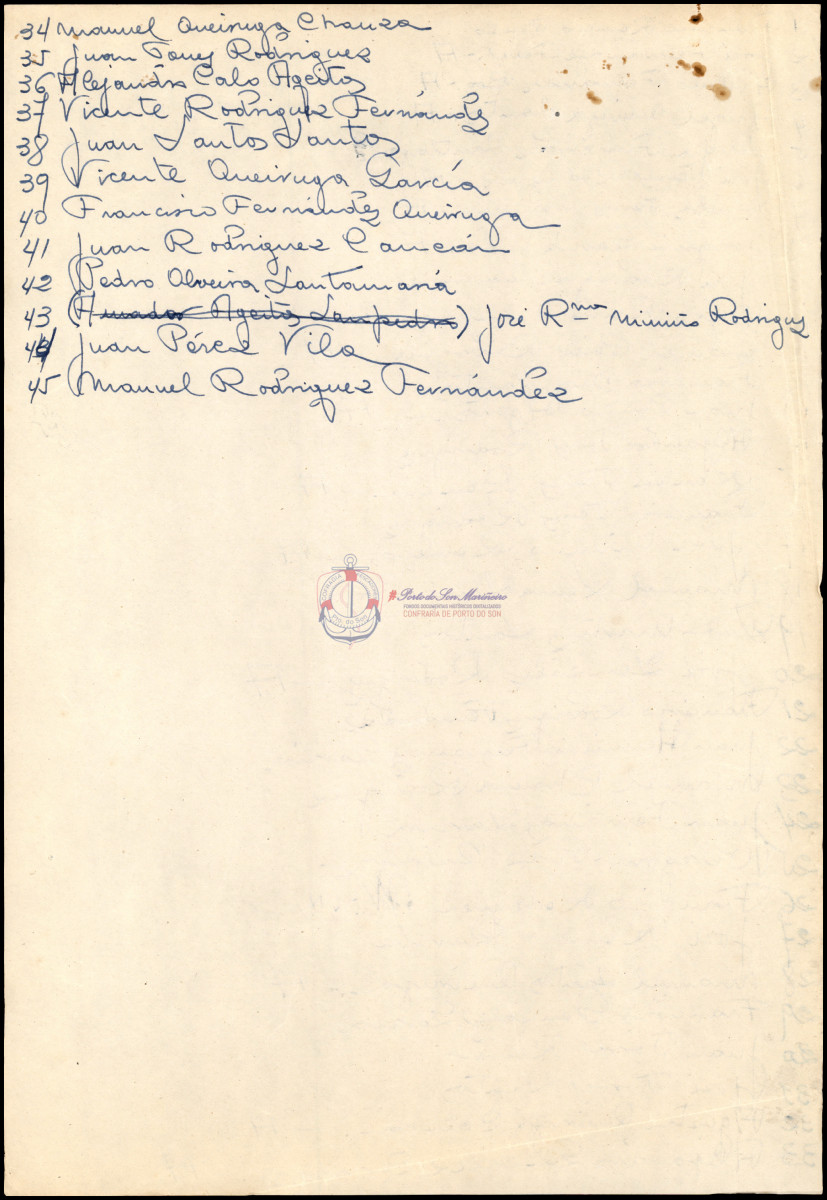 34 Manuel Queiruga Chouza
35 Juan Torres Rodriguez
36 Alejandro Calo Ageitos
37 Vicente Rodriguez Fernández
38 Juan Santos Santos
39 Vicente Queiruga García
40 Francisco Fernández Queiruga
41 Juan Rodriguez Cancán
42 Pedro Oliveira Santamaría
43 (Amador Ageitos Sampedro) José Rmo Miniño Rodriguez
44 Juan Pérez Vila
45 Manuel Rodriguez Fernández
CONFRARÍA
Pto. do Son
#Porto do Son Mariñeiro
FONDOS DOCUMENTAIS HISTÓRICOS DIXITALIZADOS
CONFRARÍA DE PORTO DO SON